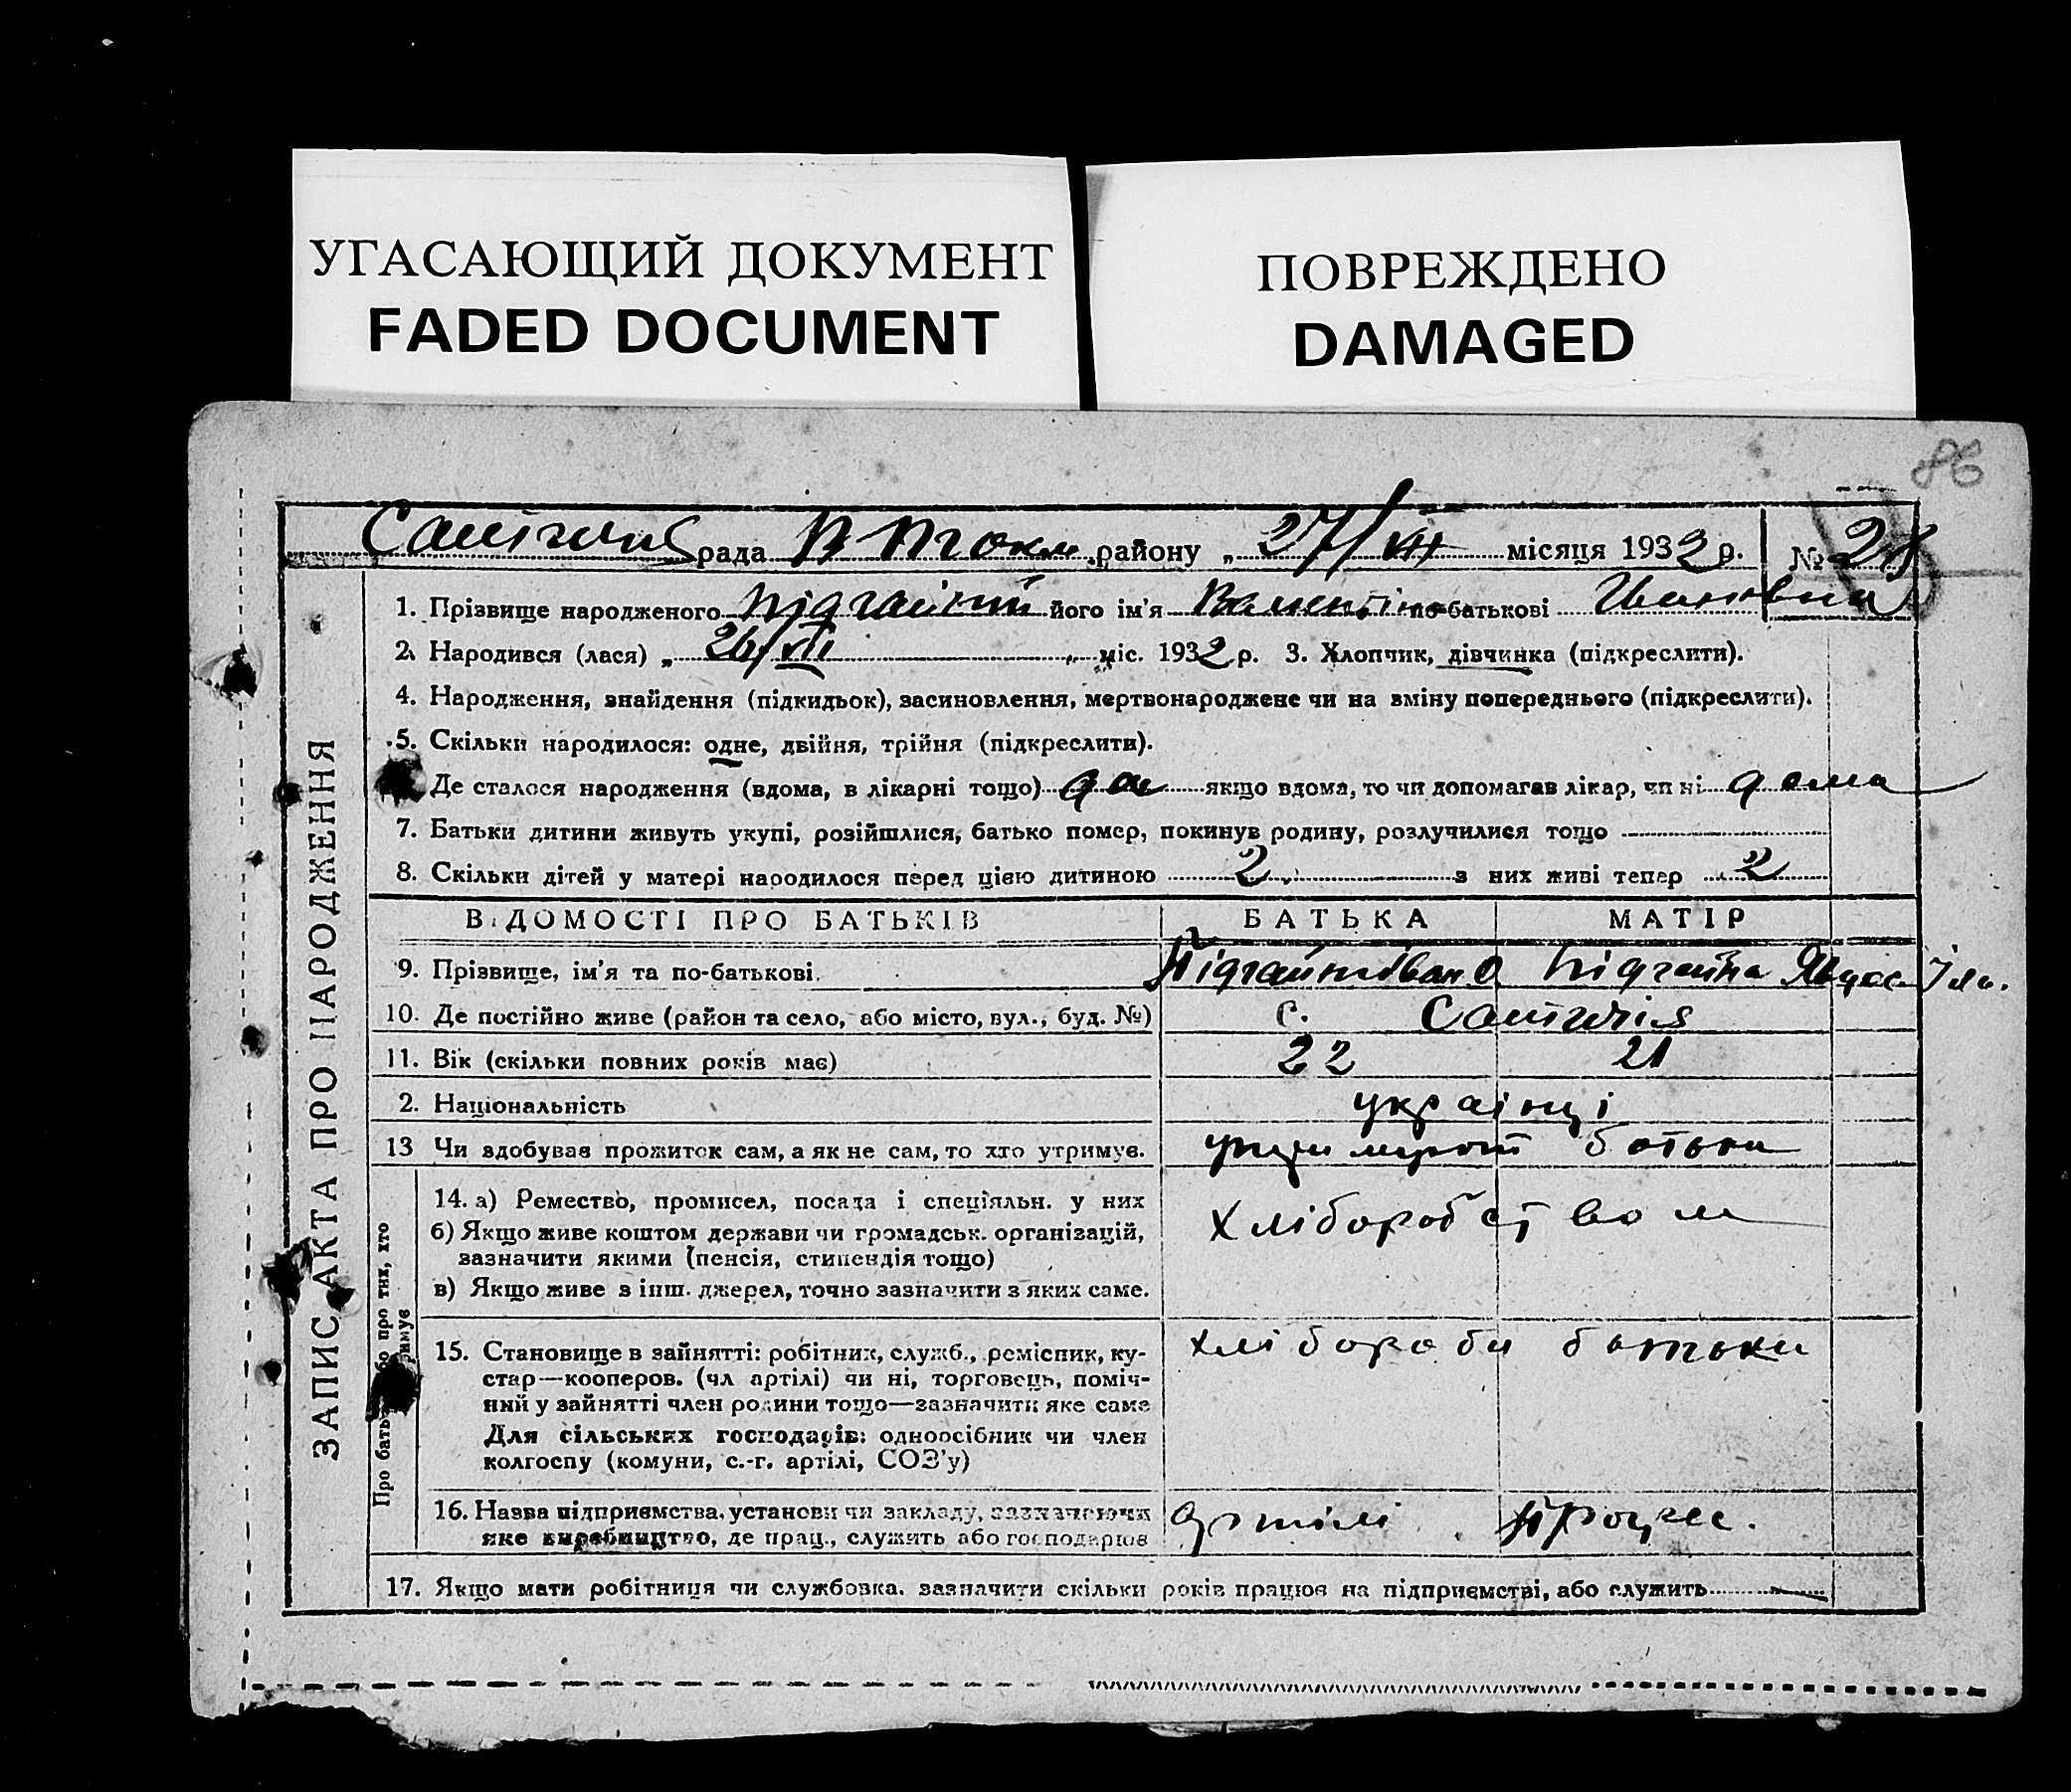 УГАСАЮЩИЙ ДОКУМЕНТ
FADED DOCUMENT
ПОВРЕЖДЕНО
DAMAGED
86
рада В Токм району „ 27/VII місяця 1932 р. № 28
1. Прізвище народженого Підгайний його ім'я Валентина по-батькові Ивановна
2. Народився (лася) „ 26/VII міс. 1932 р. 3. Хлопчик, дівчинка (підкреслити).
4. Народження, знайдення (підкидьок), засиновлення, мертвонароджене чи на зміну попереднього (підкреслити).
5. Скільки народилося: одне, двійня, трійня (підкреслити).
Де сталося народження (вдома, в лікарні тощо) якщо вдома, то чи допомагав лікар, чи ні дома
7. Батьки дитини живуть укупі, розійшлися, батько помер, покинув родину, розлучилися тощо
8. Скільки дітей у матері народилося перед цією дитиною 2 з них живі тепер 2
ВІДОМОСТІ ПРО БАТЬКІВ БАТЬКА МАТІР
9. Прізвище, ім'я та по-батькові. Підгайний Иван О Підгайна
10. Де постійно живе (район та село, або місто, вул., буд. №) с.
11. Вік (скільки повних років має) 22 21
2. Національність українці
13 Чи здобував прожиток сам, а як не сам, то хто утримує. батьки
14. а) Ремество, промисел, посада і спеціяльн. у них хліборобством
б) Якщо живе коштом держави чи громадськ. організацій,
зазначити якими (пенсія, стипендія тощо)
в) Якщо живе з інш. джерел, точно зазначити з яких саме.
15. Становище в зайнятті: робітник, служб., реміспик, ку-
стар—кооперов. (чл артілі) чи ні, торговець, поміч-
ний у зайнятті член родини тощо—зазначити яке саме
хлібороби батьки
Для сільських господарів: одноосібник чи член
колгоспу (комуни, с.-г. артілі, СОЗ'у)
16. Назва підприємства, установи чи закладу, зазначаючи
яке виробництво, де прац., служить або господарює
артілі
17. Якщо мати робітниця чи службовка, зазначити скільки років працює на підприємстві, або служить
ЗАПИС АКТА ПРО НАРОДЖЕННЯ
Про бать або про тих, хто
римує